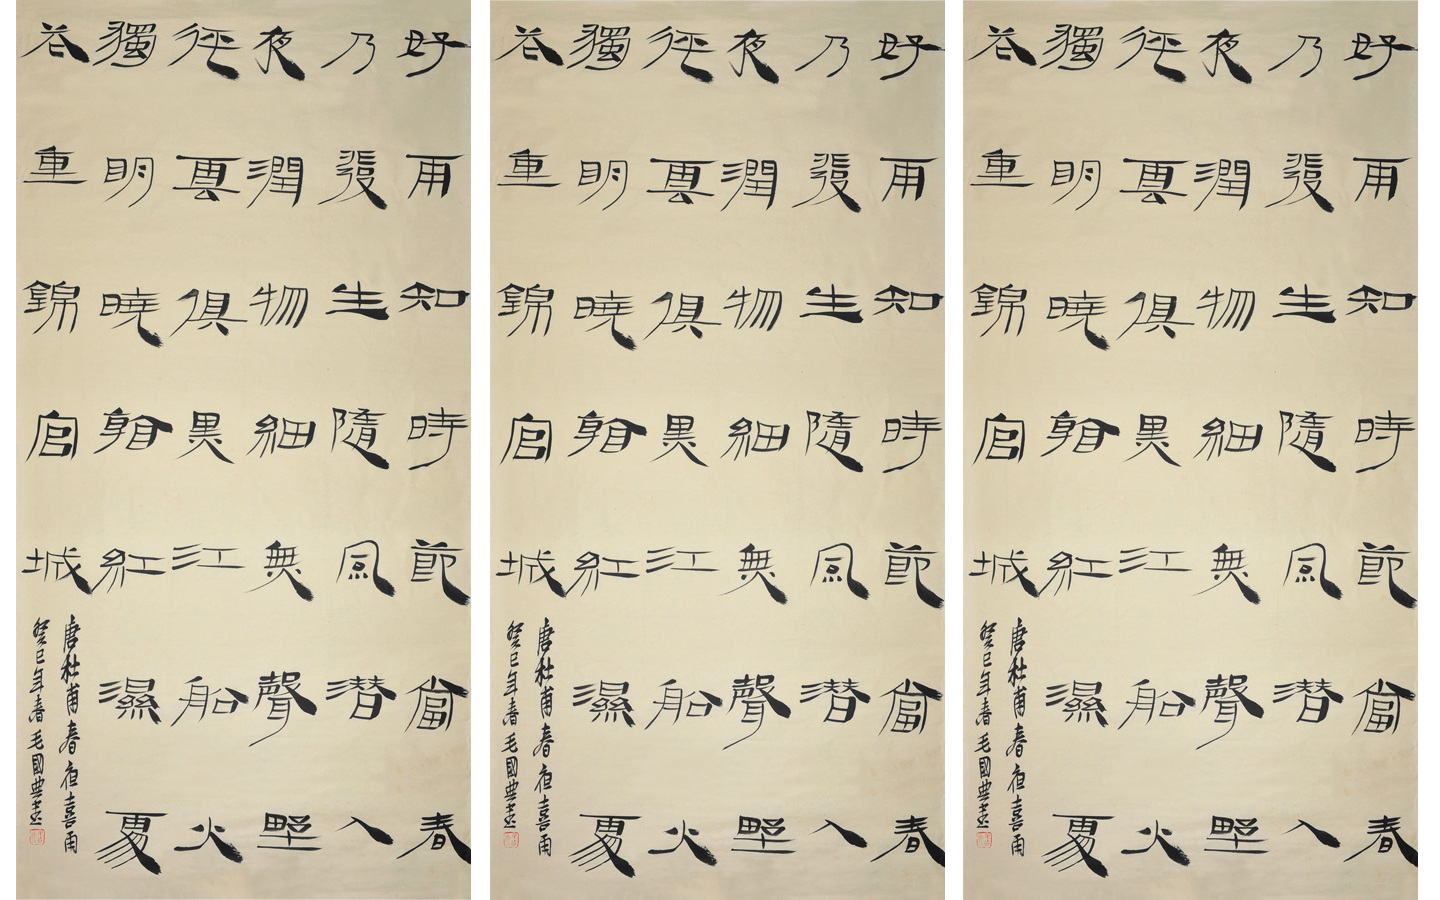 好雨知時節當春
乃發生隨風潛入
夜潤物細無聲野
徑雲俱黑江船火
獨明曉看紅濕處
花重錦官城
唐杜甫春夜喜雨
癸巳年春毛國典書
好雨知時節當春
乃發生隨風潛入
夜潤物細無聲野
徑雲俱黑江船火
獨明曉看紅濕處
花重錦官城
唐杜甫春夜喜雨
癸巳年春毛國典書
好雨知時節當春
乃發生隨風潛入
夜潤物細無聲野
徑雲俱黑江船火
獨明曉看紅濕處
花重錦官城
唐杜甫春夜喜雨
癸巳年春毛國典書